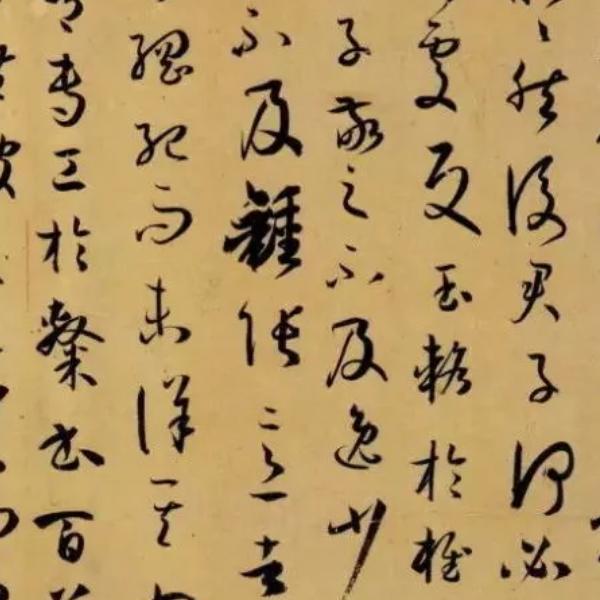 然後君子何必
處反玉輅於椎
子敬之不及逸少
不及鍾張意者
綱紀而未詳其
專工於隸書百